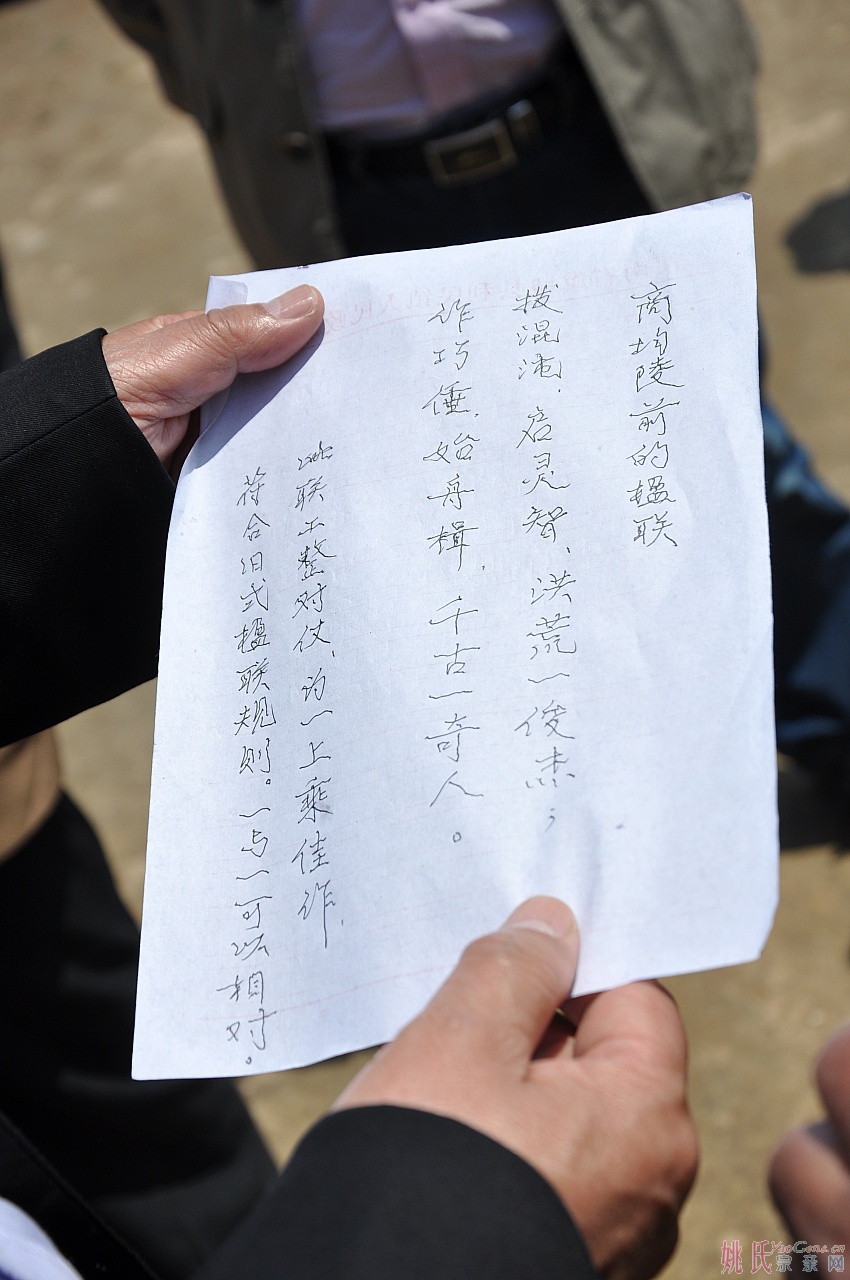 商均陵前的楹联
拨混沌,启灵智、洪荒一俊杰;
作巧倕,始舟楫,千古一奇人。
此联工整对仗,为一上乘佳作,
符合旧式楹联规则。一与一可以相对。
姚氏 YaoGens.cn
宗亲网